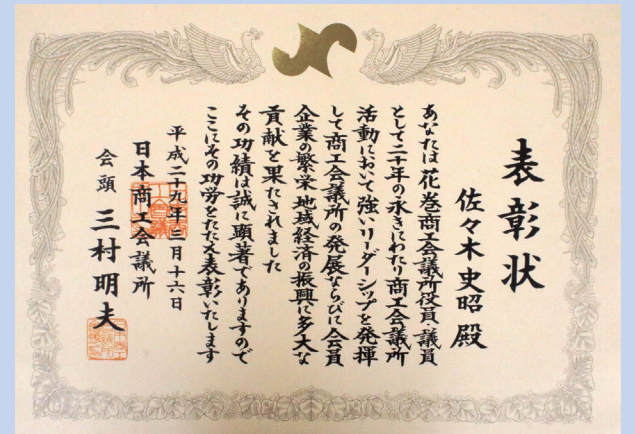 表彰状
佐々木史昭殿
あなたは花巻商工会議所役員・議員
として二十年の永きにわたり商工会議所
活動において強いリーダーシップを発揮
して商工会議所の発展ならびに会員
企業の繁栄 地域経済の振興に多大な
貢献を果たされました
その功績は誠に顕著でありますので
ここにその功労をたたえ表彰いたします
平成二十九年三月十六日
日本商工会議所
会頭 三村明夫